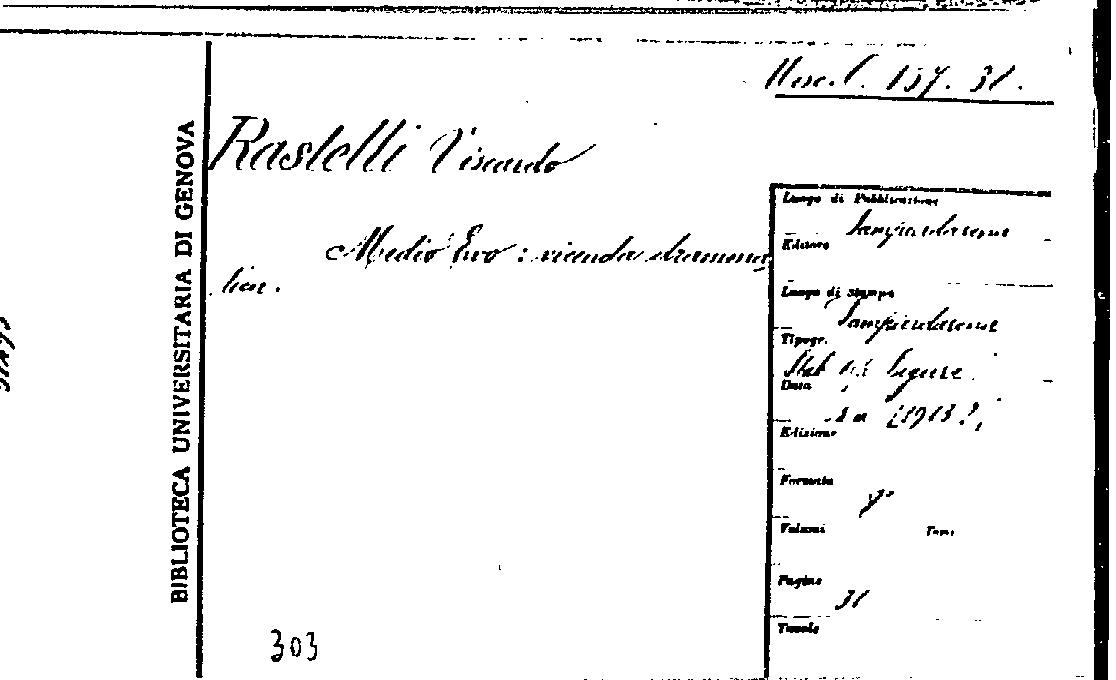 Misc. C. 157. 31.
BIBLIOTECA UNIVERSITARIA DI GENOVA
Rastelli Viscardo
Medio Evo: vicenda dramma
tica.
Luogo di Pubblicazione
Sampierdarena
Editore
Luogo di Stampa
Sampierdarena
Tipogr.
Stab. Ligure
Data
[1913?]
Edizione
Formato
8°
Volumi Tomi
Pagine
31
Tavole
303